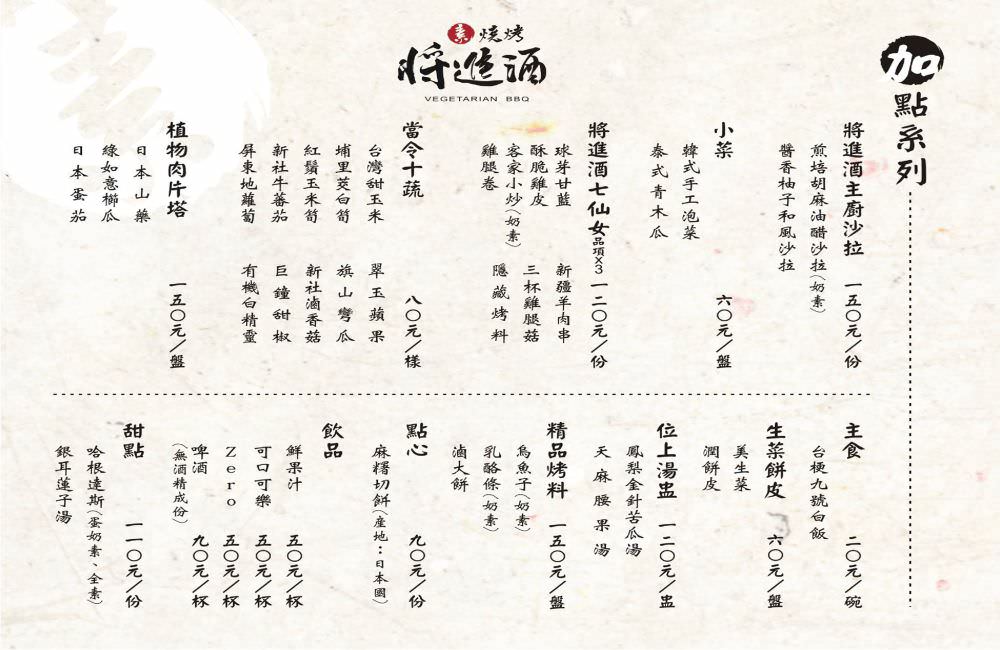 素 燒烤
將進酒
VEGETARIAN BBQ
加點系列
將進酒主廚沙拉 一五〇元／份
煎焙胡麻油醋沙拉(奶素)
醬香柚子和風沙拉
小菜 六〇元／盤
韓式手工泡菜
泰式青木瓜
將進酒七仙女品項x3 一二〇元／份
球芽甘藍 新疆羊肉串
酥脆雞皮 三杯雞腿菇
客家小炒(奶素) 隱藏烤料
雞腿卷
當令十蔬 八〇元／樣
台灣甜玉米 翠玉蘋果
埔里茭白筍 旗山彎瓜
紅鬚玉米筍 新社滷香菇
新社牛蕃茄 巨鐘甜椒
屏東地蘿蔔 有機白精靈
植物肉片塔 一五〇元／盤
日本山藥
綠如意櫛瓜
日本蛋茄
主食 二〇元／碗
台梗九號白飯
生菜餅皮 六〇元／盤
美生菜
潤餅皮
位上湯盅 一二〇元／盅
鳳梨金針苦瓜湯
天麻腰果湯
精品烤料 一五〇元／盤
烏魚子(奶素)
乳酪條(奶素)
滷大餅
點心 九〇元／份
麻糬切餅(產地：日本國)
飲品
鮮果汁 五〇元／杯
可口可樂 五〇元／杯
Zero 五〇元／杯
啤酒 九〇元／杯
(無酒精成份)
甜點 一一〇元／份
哈根達斯(蛋奶素、全素)
銀耳蓮子湯